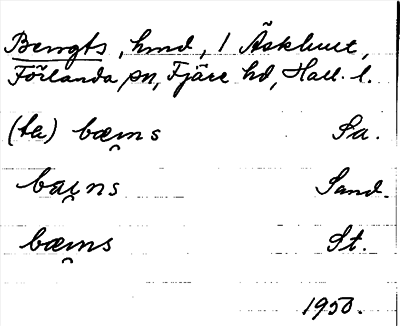 Bengts, hmd, 1 Äskhult,
Förlanda sn, Fjäre hd, Hall. l.
(ta) bæm̯s Sa.
bai̯ns Sand.
bæm̯s St.
1950.